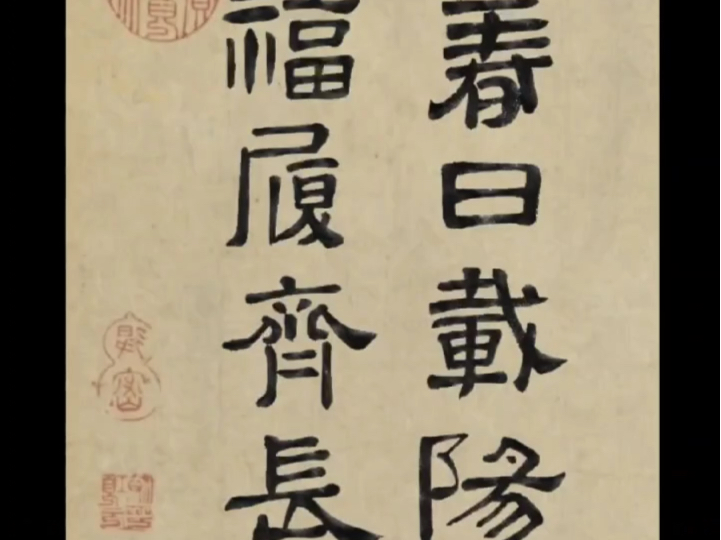 春日載陽
福履齊長